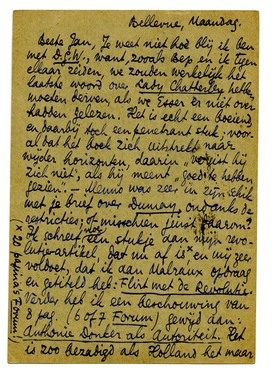 Bellevue, Maandag.
Beste Jan, Je weet niet hoe blij ik ben
met D.G.W., want, zooals Bep en ik tegen
elkaar zeiden, we zouden werkelijk het
laatste woord over Lady Chatterley hebben
moeten derven, als we Esser er niet over
hadden gelezen. Het is echt een boeiend
en daarbij toch een penetrant stuk, voor-
al dat het boek zich uitstrekt naar
wijder horizonten, daarin "vergist hij
zich niet", als hij meent "goed te hebben
gezien". - Menno was zeer in zijn schik
met je brief over Dumay, ondanks de
restricties; of misschien juist daarom?
Hij schreef een stukje aan mijn revo-
lutierartikel, dat nu af is x en mij zeer
voldoet, dat ik dan Malraux opdraag
en getiteld heb: Flirt met de Revolutie.
Verder heb ik een beschouwing van
8 pag. (6 of 7 Forum) gewijd aan:
Anthonie Donker als Autoriteit. Het
is zoo bezadigd als Holland het maar
x 20 pagina's Forum!